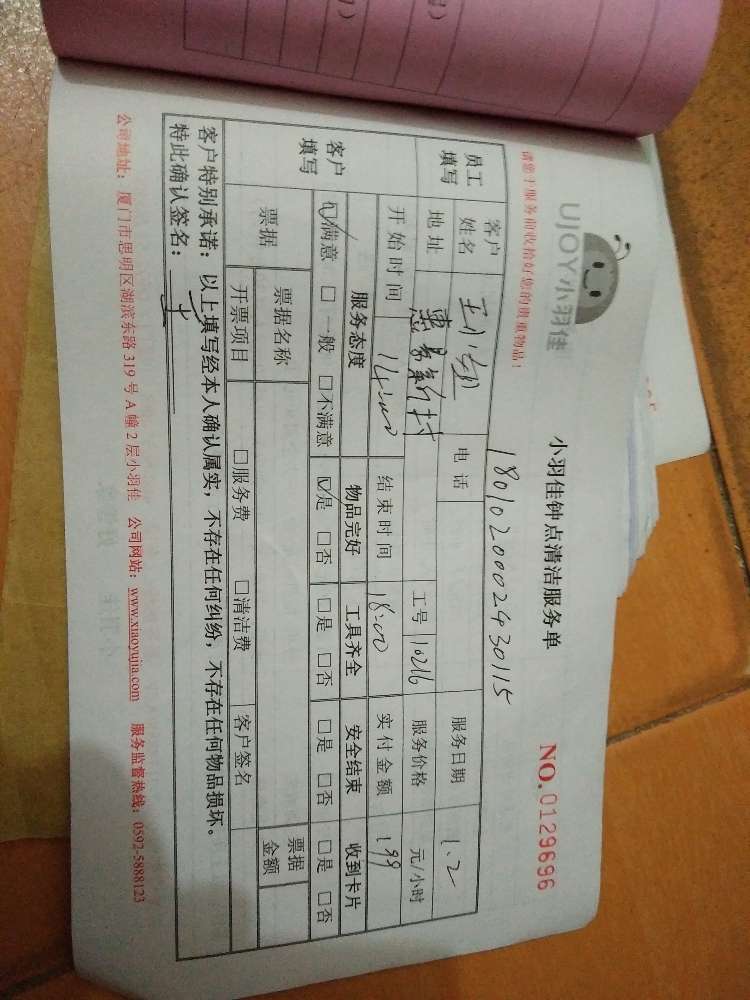 UJOY小羽佳
小羽佳钟点清洁服务单
NO.0129696
请您于服务前收拾好您的贵重物品！
1801020002430115
员工填写
客户姓名
电话
服务日期 1.2
地址
工号 10216
服务价格 元/小时
开始时间 14:00
结束时间 18:00
实付金额 199
客户填写
服务态度 物品完好 工具齐全 安全结束 收到卡片
☑满意 □一般 □不满意 ☑是 □否 □是 □否 □是 □否 □是 □否
票据
票据名称
票据金额
开票项目 □服务费 □清洁费 客户签名
客户特别承诺：以上填写经本人确认属实，不存在任何纠纷，不存在任何物品损坏。
特此确认签名：
公司地址：厦门市思明区湖滨东路319号A幢2层小羽佳 公司网站：www.xiaoyujia.com 服务监督热线：0592-5888123